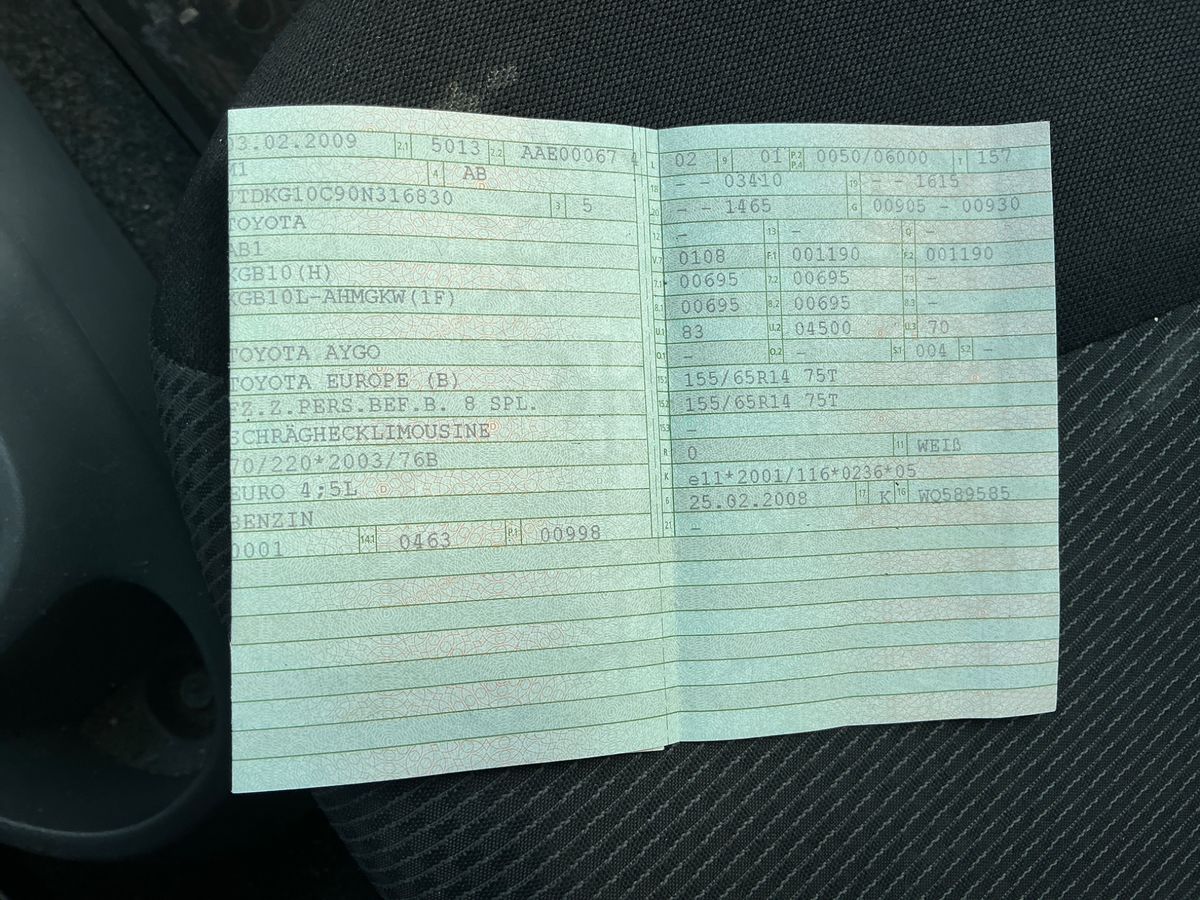 3.02.2009 2.1 5013 2.2 AAE00067 4
M1 4 AB
JTDKG10C90N316830 3 5
TOYOTA
AB1
KGB10(H)
KGB10L-AHMGKW(1F)
TOYOTA AYGO
TOYOTA EUROPE (B)
FZ.Z.PERS.BEF.B. 8 SPL.
SCHRÄGHECKLIMOUSINE
70/220*2003/76B
EURO 4;5L
BENZIN
0001 14.1 0463 P.1 00998
L 02 9 01 P.2 P.4 0050/06000 T 157
18 - - 03410 19 - - 1615
20 - - 1465 G 00905 - 00930
12 - 13 - Q -
V.7 0108 F.1 001190 F.2 001190
7.1 00695 7.2 00695 7.3 -
8.1 00695 8.2 00695 8.3 -
U.1 83 U.2 04500 U.3 70
O.1 - O.2 - S.1 004 S.2 -
15.1 155/65R14 75T
15.2 155/65R14 75T
15.3 -
R 0 11 WEIß
K e11*2001/116*0236*05
6 25.02.2008 17 K 16 WO589585
21 -